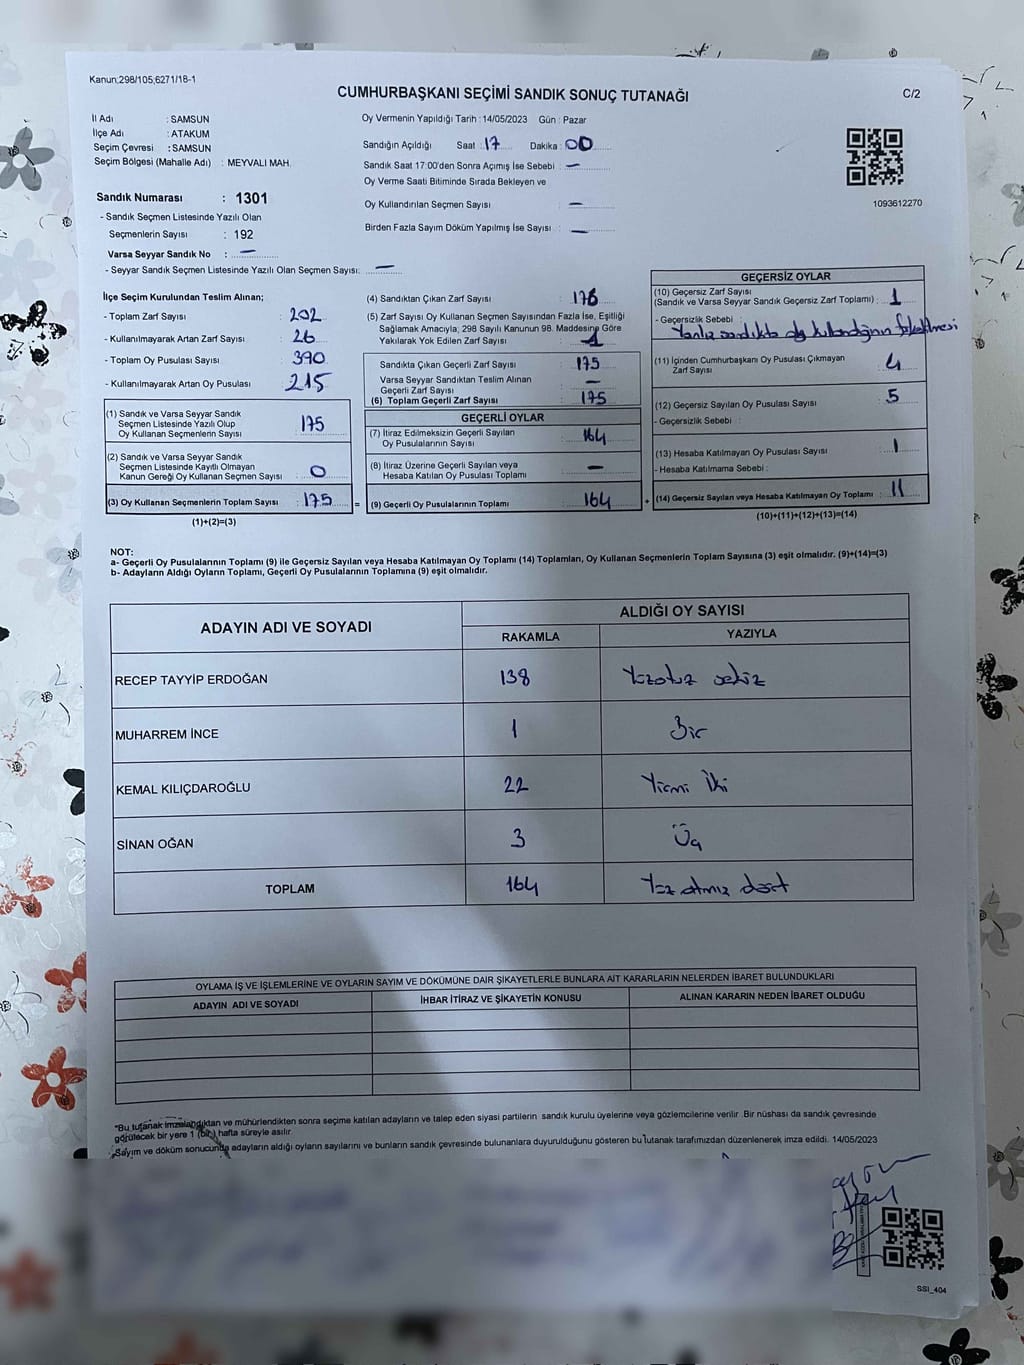 Kanun;298/105;6271/18-1
CUMHURBAŞKANI SEÇİMİ SANDIK SONUÇ TUTANAĞI
C/2
İl Adı : SAMSUN
İlçe Adı : ATAKUM
Seçim Çevresi : SAMSUN
Seçim Bölgesi (Mahalle Adı) : MEYVALI MAH.
Oy Vermenin Yapıldığı Tarih : 14/05/2023 Gün : Pazar
Sandığın Açıldığı Saat : 17 Dakika : 00
Sandık Saat 17:00'den Sonra Açımış İse Sebebi : —
Oy Verme Saati Bitiminde Sırada Bekleyen ve
Oy Kullandırılan Seçmen Sayısı : —
Birden Fazla Sayım Döküm Yapılmış İse Sayısı : —
1093612270
Sandık Numarası : 1301
- Sandık Seçmen Listesinde Yazılı Olan
Seçmenlerin Sayısı : 192
Varsa Seyyar Sandık No : —
- Seyyar Sandık Seçmen Listesinde Yazılı Olan Seçmen Sayısı: —
İlçe Seçim Kurulundan Teslim Alınan;
- Toplam Zarf Sayısı : 202
- Kullanılmayarak Artan Zarf Sayısı : 26
- Toplam Oy Pusulası Sayısı : 390
- Kullanılmayarak Artan Oy Pusulası : 215
(1) Sandık ve Varsa Seyyar Sandık
Seçmen Listesinde Yazılı Olup
Oy Kullanan Seçmenlerin Sayısı : 175
(2) Sandık ve Varsa Seyyar Sandık
Seçmen Listesinde Kayıtlı Olmayan
Kanun Gereği Oy Kullanan Seçmen Sayısı : 0
(3) Oy Kullanan Seçmenlerin Toplam Sayısı : 175
(1)+(2)=(3)
(4) Sandıktan Çıkan Zarf Sayısı : 176
(5) Zarf Sayısı Oy Kullanan Seçmen Sayısından Fazla İse, Eşitliği
Sağlamak Amacıyla; 298 Sayılı Kanunun 98. Maddesine Göre
Yakılarak Yok Edilen Zarf Sayısı : 1
Sandıkta Çıkan Geçerli Zarf Sayısı : 175
Varsa Seyyar Sandıktan Teslim Alınan
Geçerli Zarf Sayısı : —
(6) Toplam Geçerli Zarf Sayısı : 175
GEÇERLİ OYLAR
(7) İtiraz Edilmeksizin Geçerli Sayılan
Oy Pusulalarının Sayısı : 164
(8) İtiraz Üzerine Geçerli Sayılan veya
Hesaba Katılan Oy Pusulası Toplamı : —
= (9) Geçerli Oy Pusulalarının Toplamı : 164
GEÇERSİZ OYLAR
(10) Geçersiz Zarf Sayısı
(Sandık ve Varsa Seyyar Sandık Geçersiz Zarf Toplamı) : 1
- Geçersizlik Sebebi :
Yanlız sandıkta oy kullandığının
(11) İçinden Cumhurbaşkanı Oy Pusulası Çıkmayan
Zarf Sayısı : 4
(12) Geçersiz Sayılan Oy Pusulası Sayısı : 5
- Geçersizlik Sebebi :
(13) Hesaba Katılmayan Oy Pusulası Sayısı : 1
- Hesaba Katılmama Sebebi :
+ (14) Geçersiz Sayılan veya Hesaba Katılmayan Oy Toplamı : 11
(10)+(11)+(12)+(13)=(14)
NOT:
a- Geçerli Oy Pusulalarının Toplamı (9) ile Geçersiz Sayılan veya Hesaba Katılmayan Oy Toplamı (14) Toplamları, Oy Kullanan Seçmenlerin Toplam Sayısına (3) eşit olmalıdır. (9)+(14)=(3)
b- Adayların Aldığı Oyların Toplamı, Geçerli Oy Pusulalarının Toplamına (9) eşit olmalıdır.
ADAYIN ADI VE SOYADI
ALDIĞI OY SAYISI
RAKAMLA YAZIYLA
RECEP TAYYİP ERDOĞAN 138 Yüzotuz sekiz
MUHARREM İNCE 1 Bir
KEMAL KILIÇDAROĞLU 22 Yirmi İki
SİNAN OĞAN 3 Üç
TOPLAM 164 Yüz atmız dört
OYLAMA İŞ VE İŞLEMLERİNE VE OYLARIN SAYIM VE DÖKÜMÜNE DAİR ŞİKAYETLERLE BUNLARA AİT KARARLARIN NELERDEN İBARET BULUNDUKLARI
ADAYIN ADI VE SOYADI
İHBAR İTİRAZ VE ŞİKAYETİN KONUSU
ALINAN KARARIN NEDEN İBARET OLDUĞU
"Bu tutanak imzalandıktan ve mühürlendikten sonra seçime katılan adayların ve talep eden siyasi partilerin sandık kurulu üyelerine veya gözlemcilerine verilir. Bir nüshası da sandık çevresinde
görülecek bir yere 1 (bir) hafta süreyle asılır.
Sayım ve döküm sonucunda adayların aldığı oyların sayılarını ve bunların sandık çevresinde bulunanlara duyurulduğunu gösteren bu tutanak tarafımızdan düzenlenerek imza edildi. 14/05/2023
SSI_404